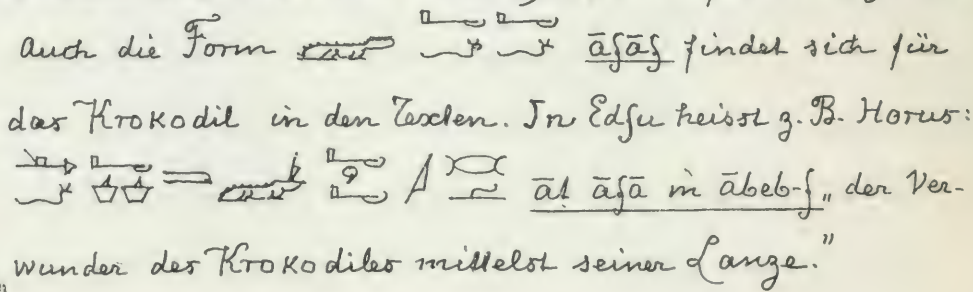 auch die Form āfāf findet sich für
das Krokodil in den Texten. In Edfu heisst z. B. Horus:
āt āfā m ābeb-f „der Ver-
wunder des Krokodiles mittelst seiner Lanze."